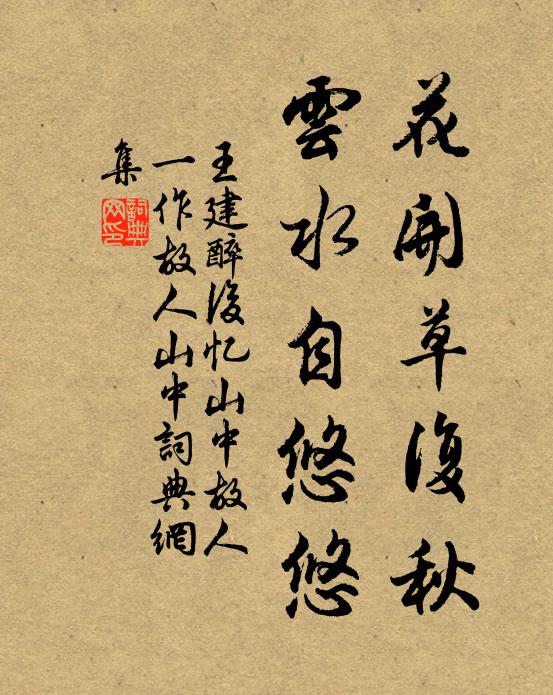 花開草復秋
雲水自悠悠
王建醉後忆山中故人
一作故人山中詞典網
集
詞典網印